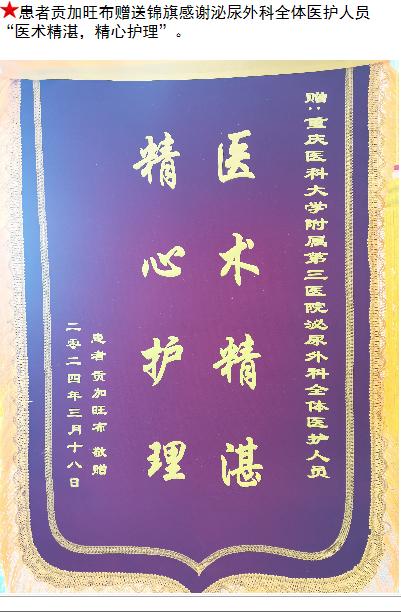 ★患者贡加旺布赠送锦旗感谢泌尿外科全体医护人员
“医术精湛，精心护理”。
赠：重庆医科大学附属第三医院泌尿外科全体医护人员
医术精湛
精心护理
患者 贡加旺布 敬赠
二零二四年三月十八日